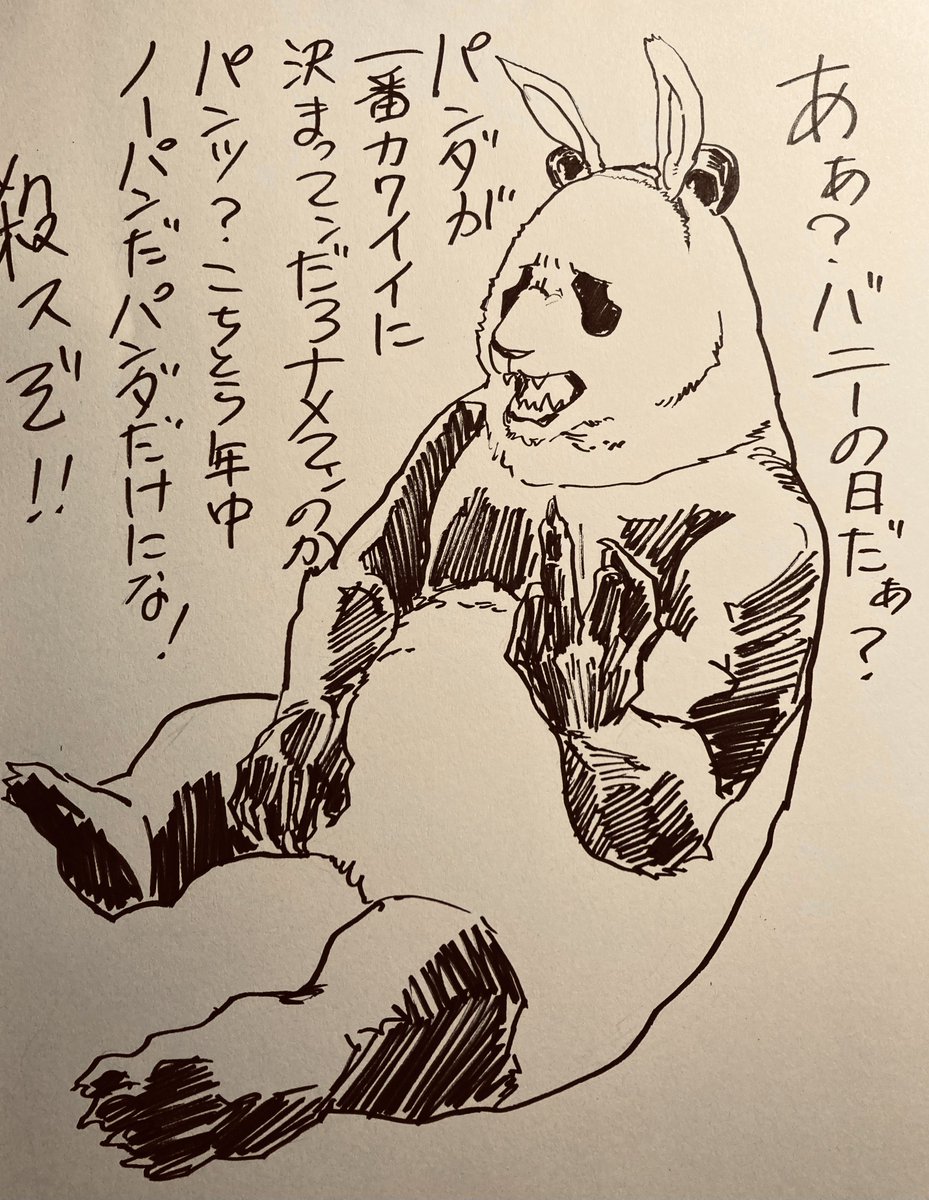 あぁ?バニーの日だぁ?
パンダが
一番カワイイに
決まってンだろナメテンのか
パンツ?こちとら年中
ノーパンだパンダだけにな!
殺スぞ!!